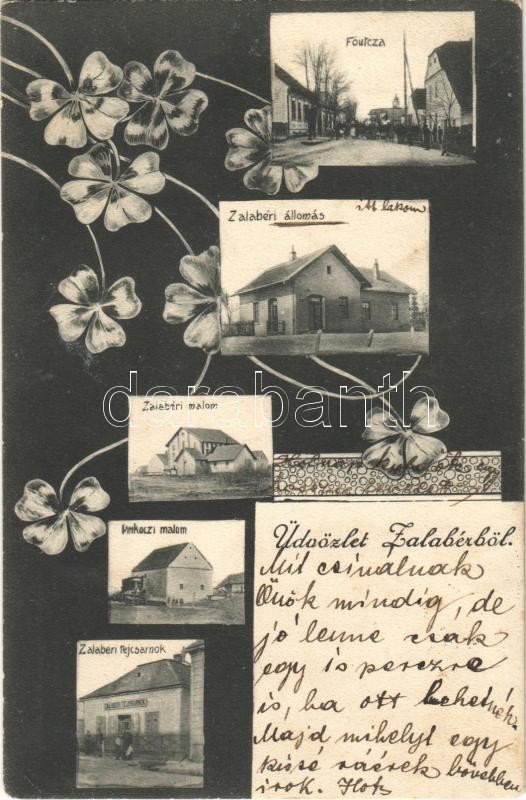 Főutcza
Zalabéri állomás
itt lakom
Zalabéri malom
Pinkoczi malom
Zalabéri tejcsarnok
ZALABÉRI TEJCSARNOK
darabanth
Üdvözlet Zalabérböl.
Mit csinálnak
Önök mindig, de
jó lenne csak
egy is perczre
is, ha ott lehetnék.
Majd mihelyt egy
kissé ráérek bövebben
irok.